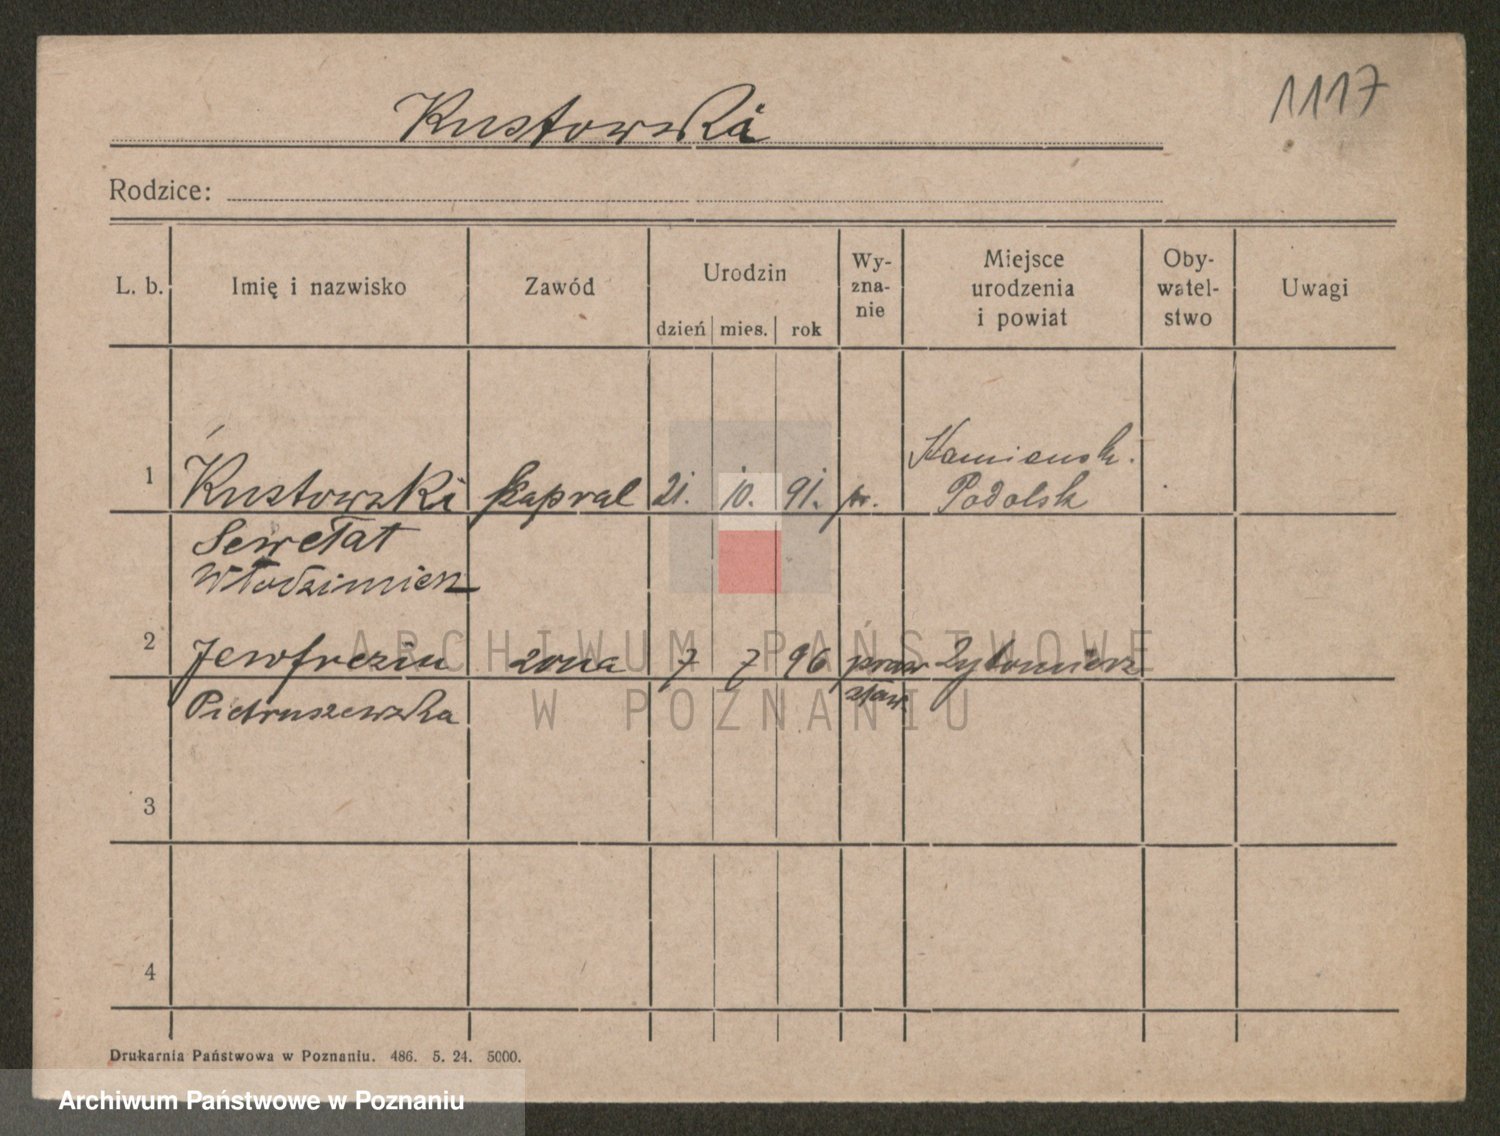 1117
Kustowski
Rodzice:
L. b. Imię i nazwisko Zawód Urodzin dzień mies. rok Wy-zna-nie Miejsce urodzenia i powiat Oby-watel-stwo Uwagi
Kamiensk.
1 Kustowski kapral 21. 10. 91. pr. Podolsk
Włodzimierz
2 żona 7 7 96 praw Żytomierz
sław
Pietruszewska
3
4
Drukarnia Państwowa w Poznaniu. 486. 5. 24. 5000.
ARCHIWUM PAŃSTWOWE
W POZNANIU
Archiwum Państwowe w Poznaniu